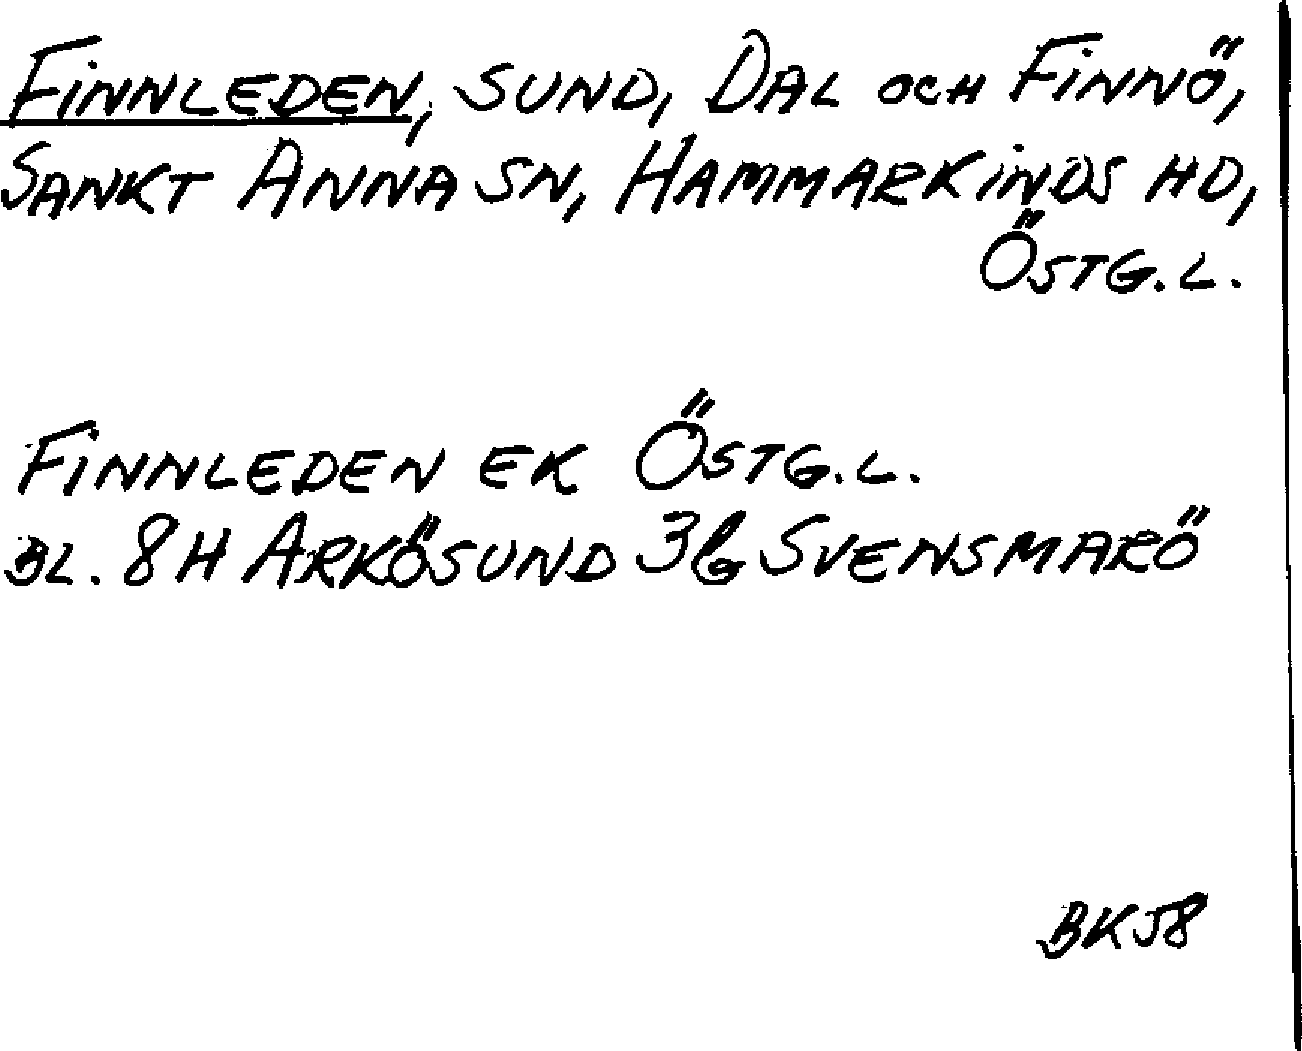 FINNLEDEN, SUND, DAL OCH FINNÖ,
SANKT ANNA SN, HAMMARKINDS HD,
ÖSTG.L.
FINNLEDEN EK ÖSTG.L.
BL. 8H ARKÖSUND 3b SVENSMARÖ
BK58